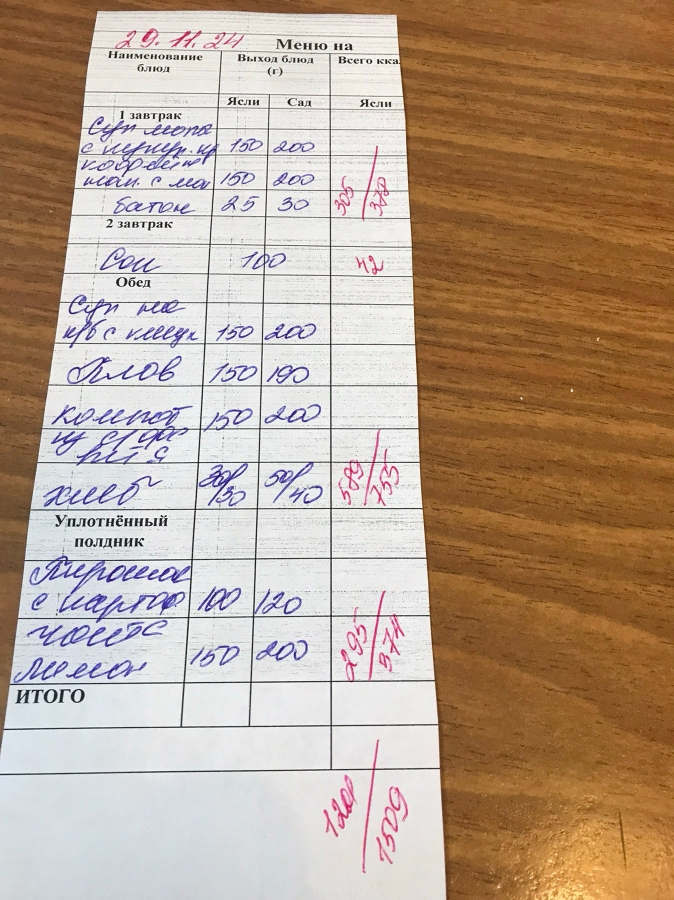 29.11.24 Меню на
Наименование блюд Выход блюд (г) Всего ккал
Ясли Сад Ясли
1 завтрак
Суп моло
с 150 200
305/378
нап. с мо 150 200
батон 25 30
2 завтрак
Сок 100 42
Обед
Суп на
к/б с 150 200
Плов 150 190
компот 150 200
из
хлеб 30/30 50/40 589/755
Уплотнённый
полдник
Пирожок
с картоф 100 120
чай с 295/374
лимон 150 200
ИТОГО
1509